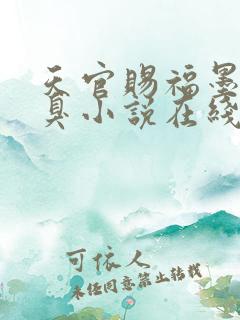 天官赐福墨
臭小说在线
可依人
未经同意禁止转载